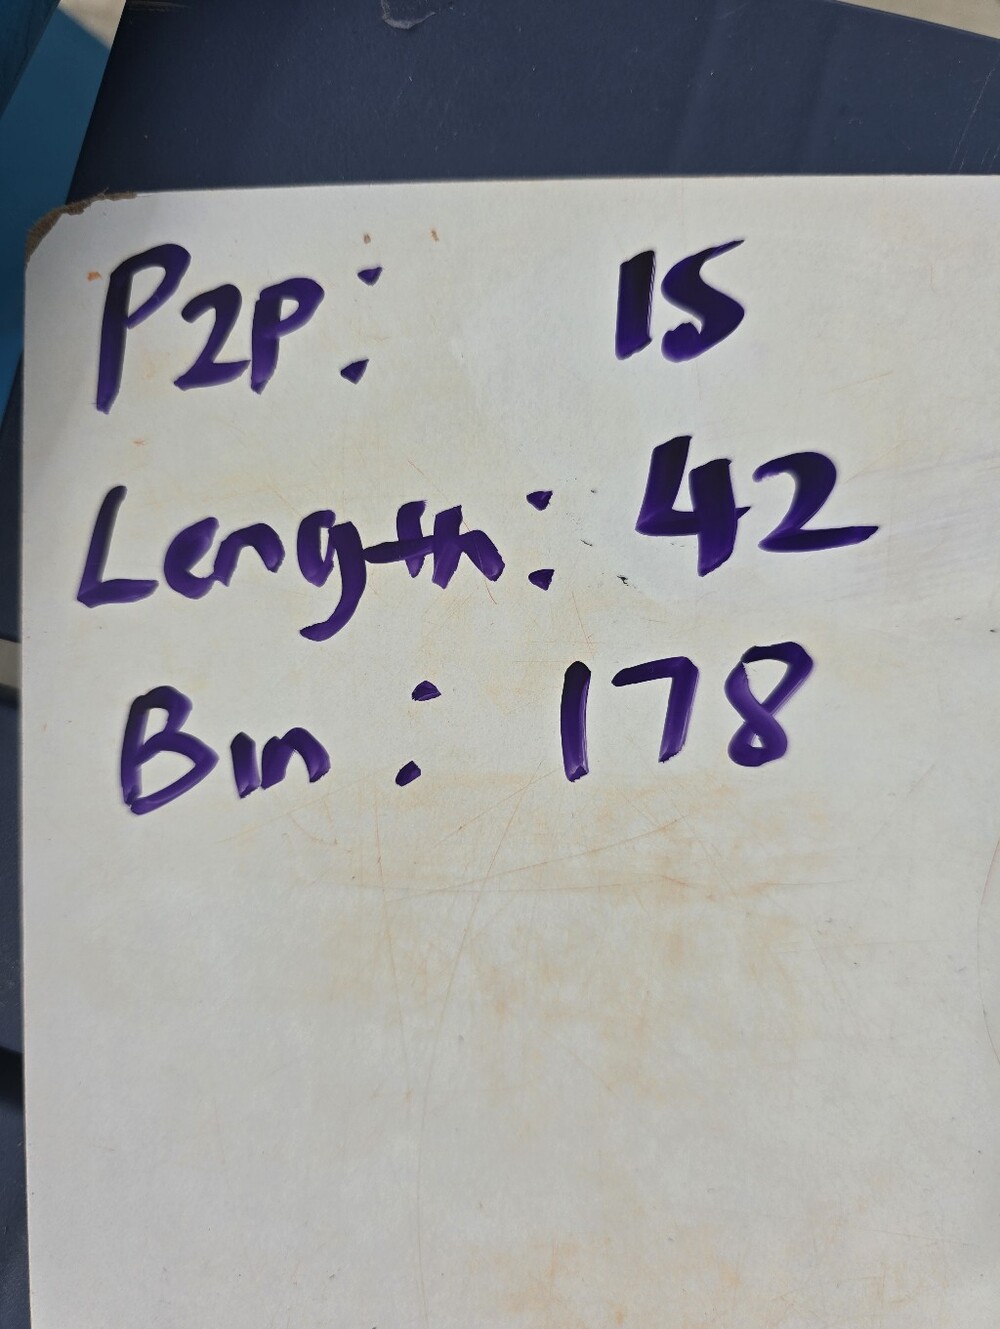 P2P: 15
Length: 42
Bin: 178